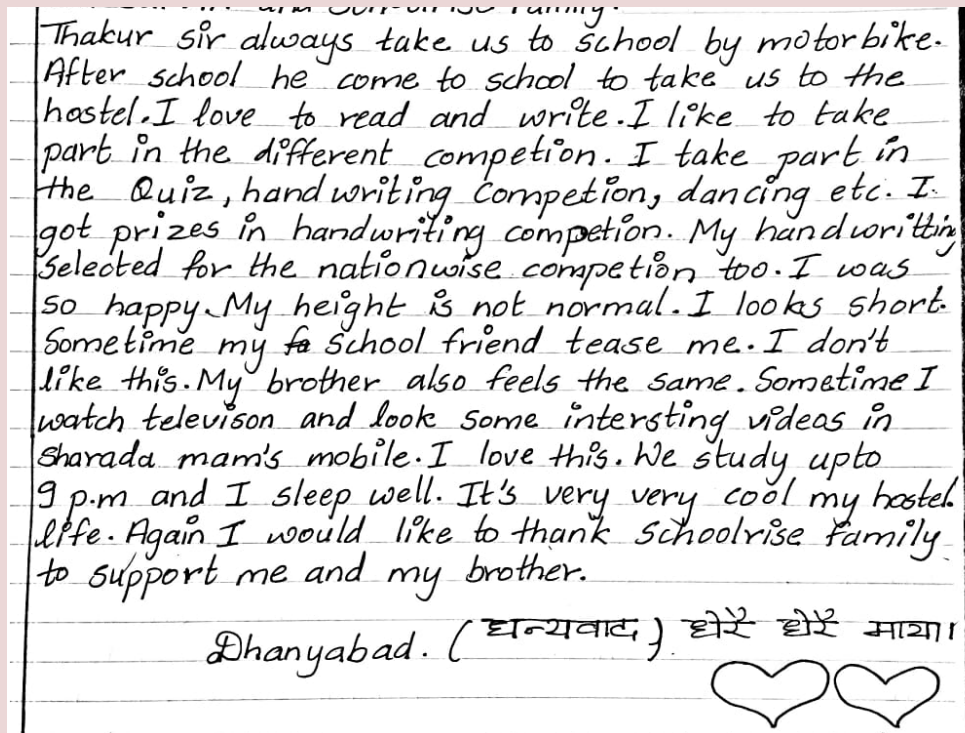 Thakur sir always take us to school by motorbike.
After school he come to school to take us to the
hostel. I love to read and write. I like to take
part in the different competion. I take part in
the Quiz, handwriting Competion, dancing etc. I
got prizes in handwriting competion. My handwritting
Selected for the nationwise competion too. I was
so happy. My height is not normal. I looks short.
Sometime my School friend tease me. I don't
like this. My brother also feels the same. Sometime I
watch televison and look some intersting videos in
Sharada mam's mobile. I love this. We study upto
9 p.m and I sleep well. It's very very cool my hostel
life. Again I would like to thank Schoolrise family
to support me and my brother.
Dhanyabad. (धन्यवाद) धेरै धेरै माया।